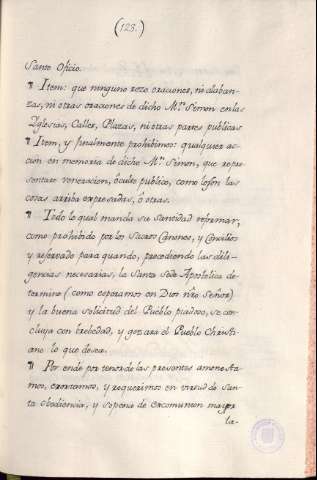 (123.)
Santo Oficio.
¶ Item: que ninguno reze oraciones, ni alaban-
zas, ni otras oraciones de dicho Mº. Simon en las
Yglesias, Calles, Plazas, ni otras partes publicas
¶ Item, y finalmente prohibimos: qualquier ac-
cion en memoria de dicho Mº. Simon, que repre-
sentare veneracion, ò culto publico, como lo son las
cosas arriba expresadas, ò otras.
¶ Todo lo qual manda su santidad reformar,
como prohibido por los Sacros Canones, y Concilios
y reservado para quando, precediendo las dili-
gencias necesarias, la Santa Sede Apostolica de-
termine (como esperamos en Dios nŕo Señor)
y la buena solicitud del Pueblo piadoso, se con-
cluya con brebedad, y gozará el Pueblo Christi-
ano lo que desea.
¶ Por ende por tenor de las presentes amonesta-
mos, exortamos, y requerimos en virtud de San-
ta obediencia, y so pena de Excomunion mayor
la-